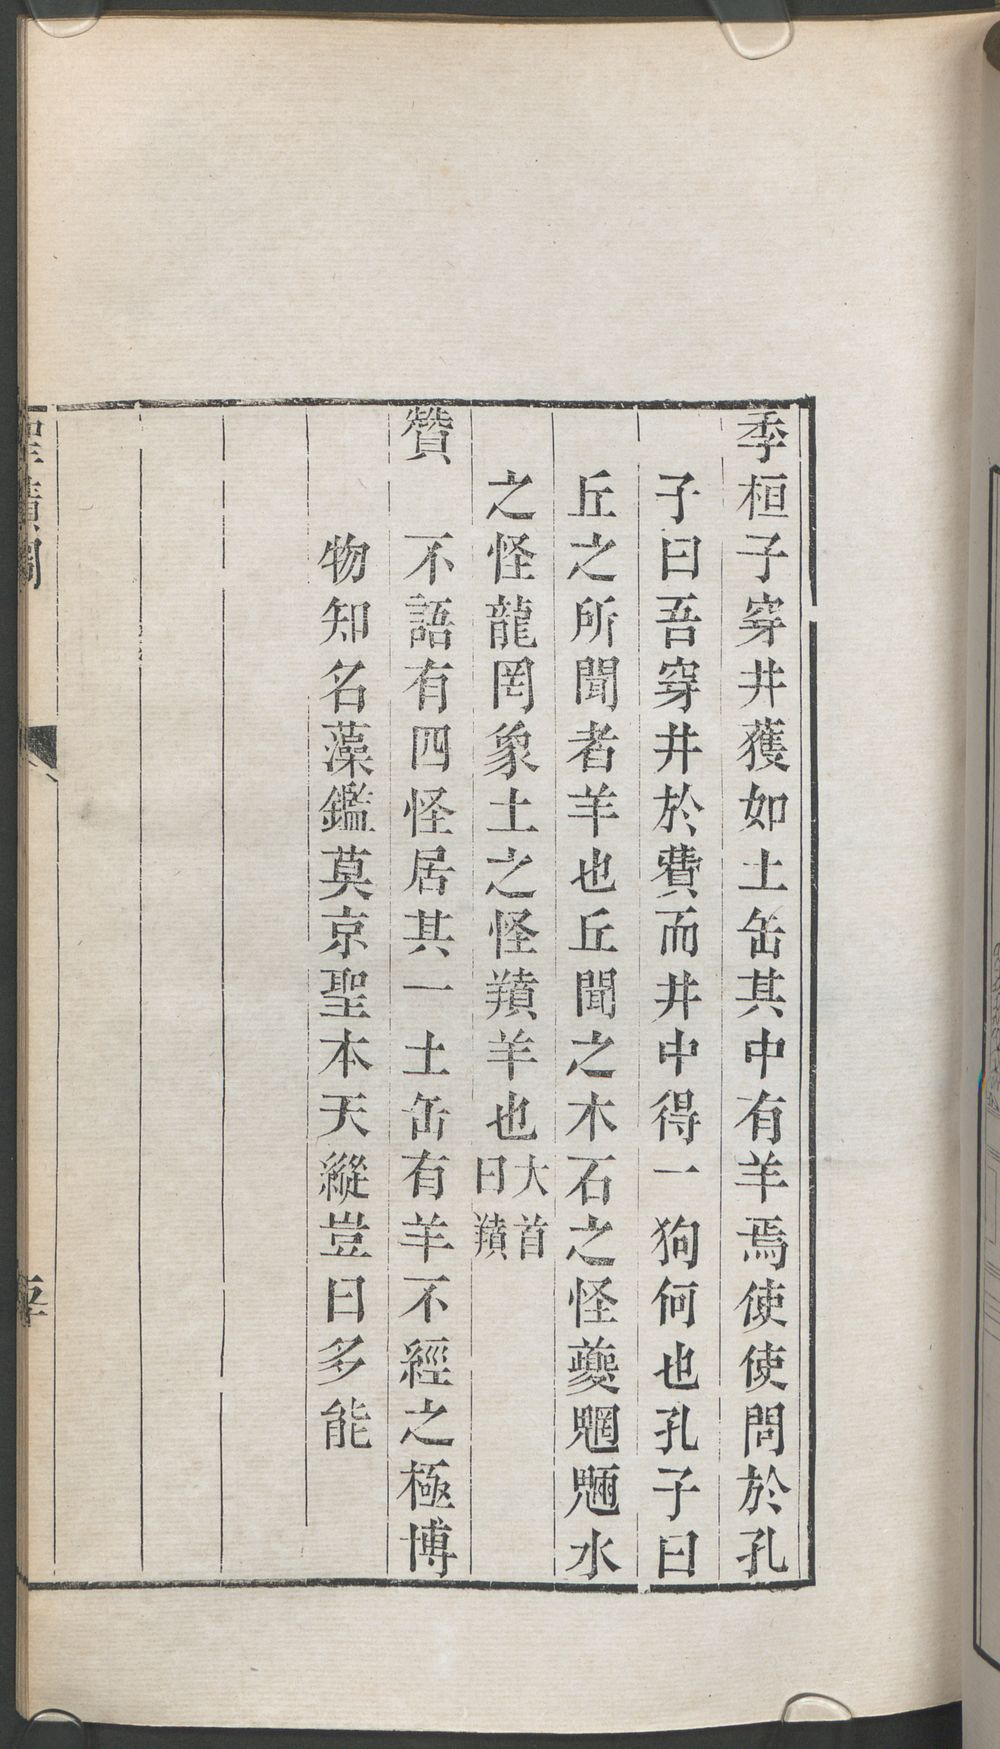 季桓子穿井獲如土缶其中有羊焉使使問於孔
子曰吾穿井於費而井中得一狗何也孔子曰
丘之所聞者羊也丘聞之木石之怪夔魍魎水
之怪龍罔象土之怪羵羊也大首曰羵
贊 不語有四怪居其一土缶有羊不經之極博
物知名藻鑑莫京聖本天縱豈曰多能
聖蹟圖